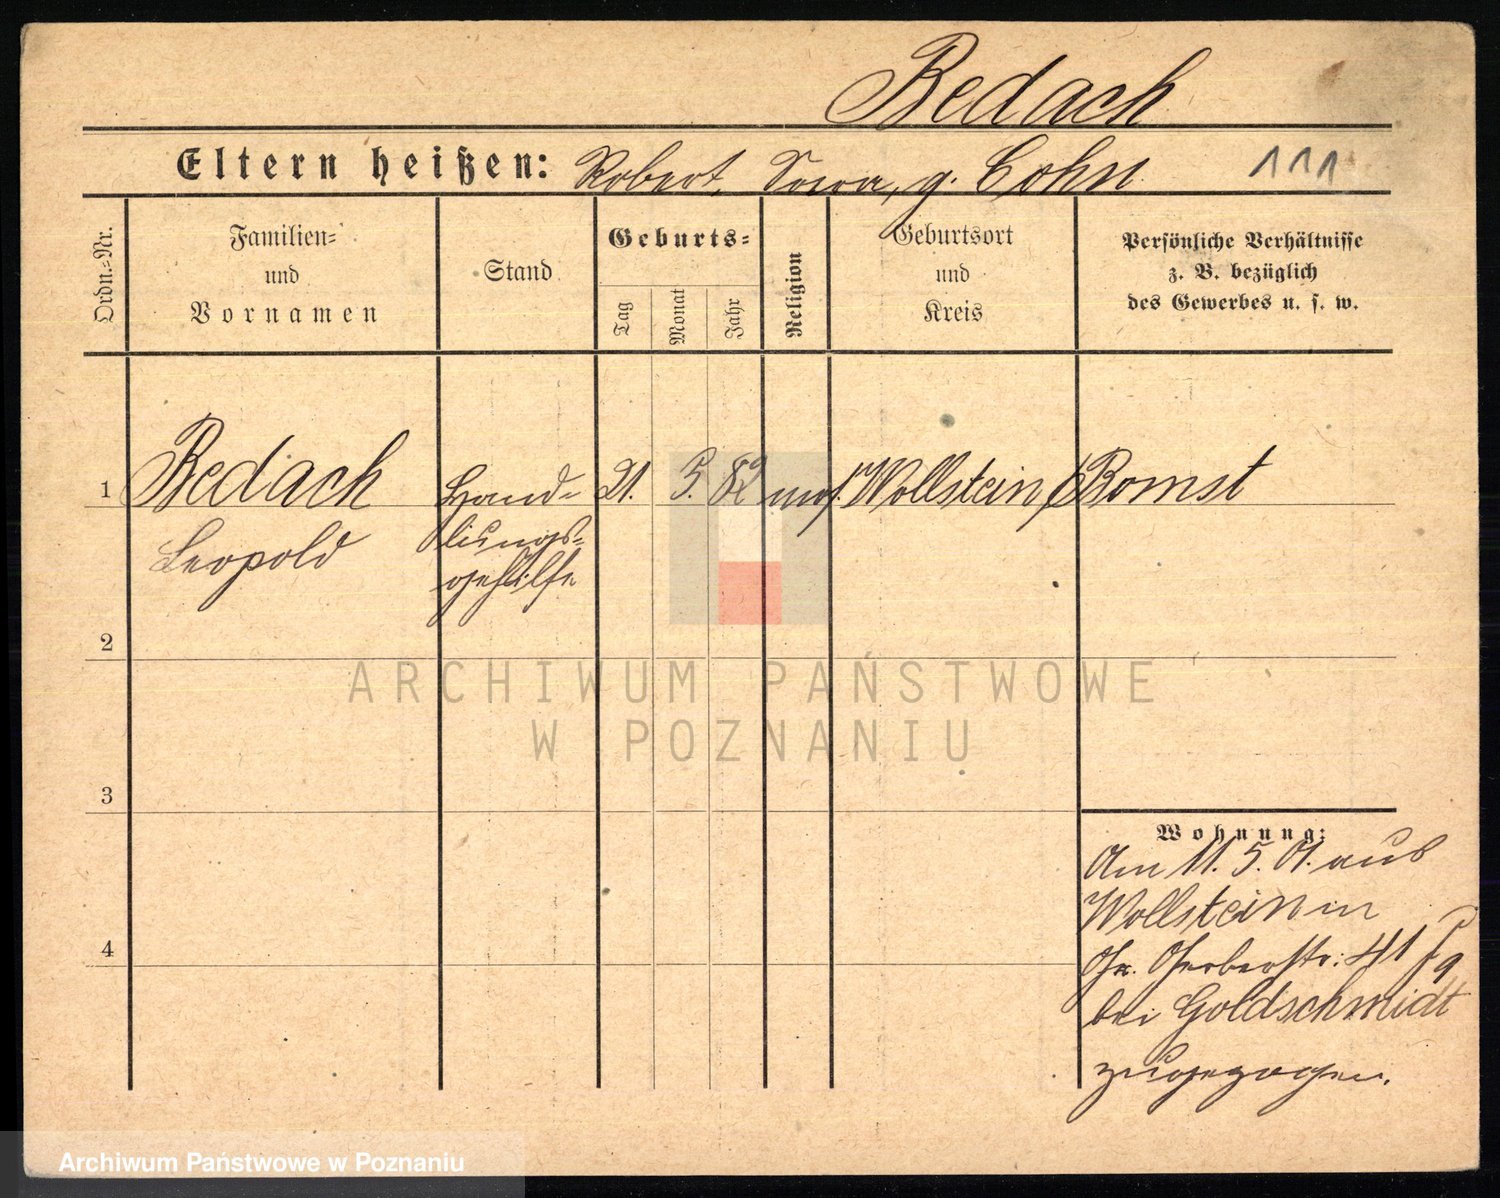 Bedach
Eltern heißen: Robert, g. Cohn
111
Ordn.-Nr.
Familien-
und
Vornamen
Stand
Geburts-
Tag
Monat
Jahr
Religion
Geburtsort
und
Kreis
Persönliche Verhältnisse
z. B. bezüglich
des Gewerbes u. s. w.
1 Bedach Hand- 21. 5. 82 mos. Wollstein/Bomst
Leopold lungs-
gehilfe
2
3
4
Wohnung:
Am 11. 5. 01. aus
Wollstein in
Gr. Gerberstr. 41
bei Goldschmidt
zugezogen.
ARCHIWUM PAŃSTWOWE
W POZNANIU
Archiwum Państwowe w Poznaniu